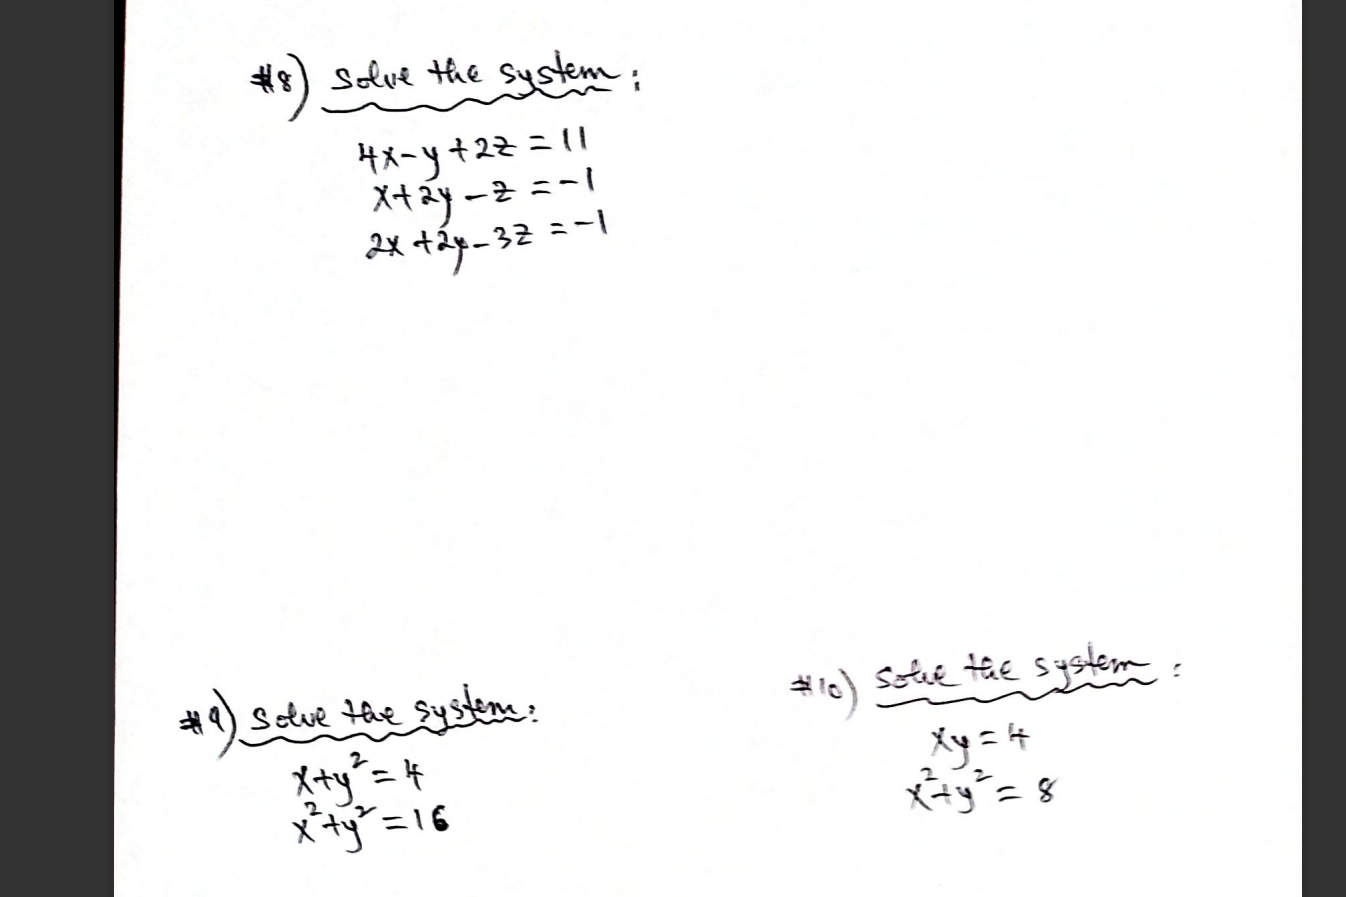 #8) Solve the system:
4x-y+2z=11
x+2y-z=-1
2x+2y-3z=-1
#9) Solve the system:
x+y²=4
x²+y²=16
#10) Solve the system:
xy=4
x²+y²=8